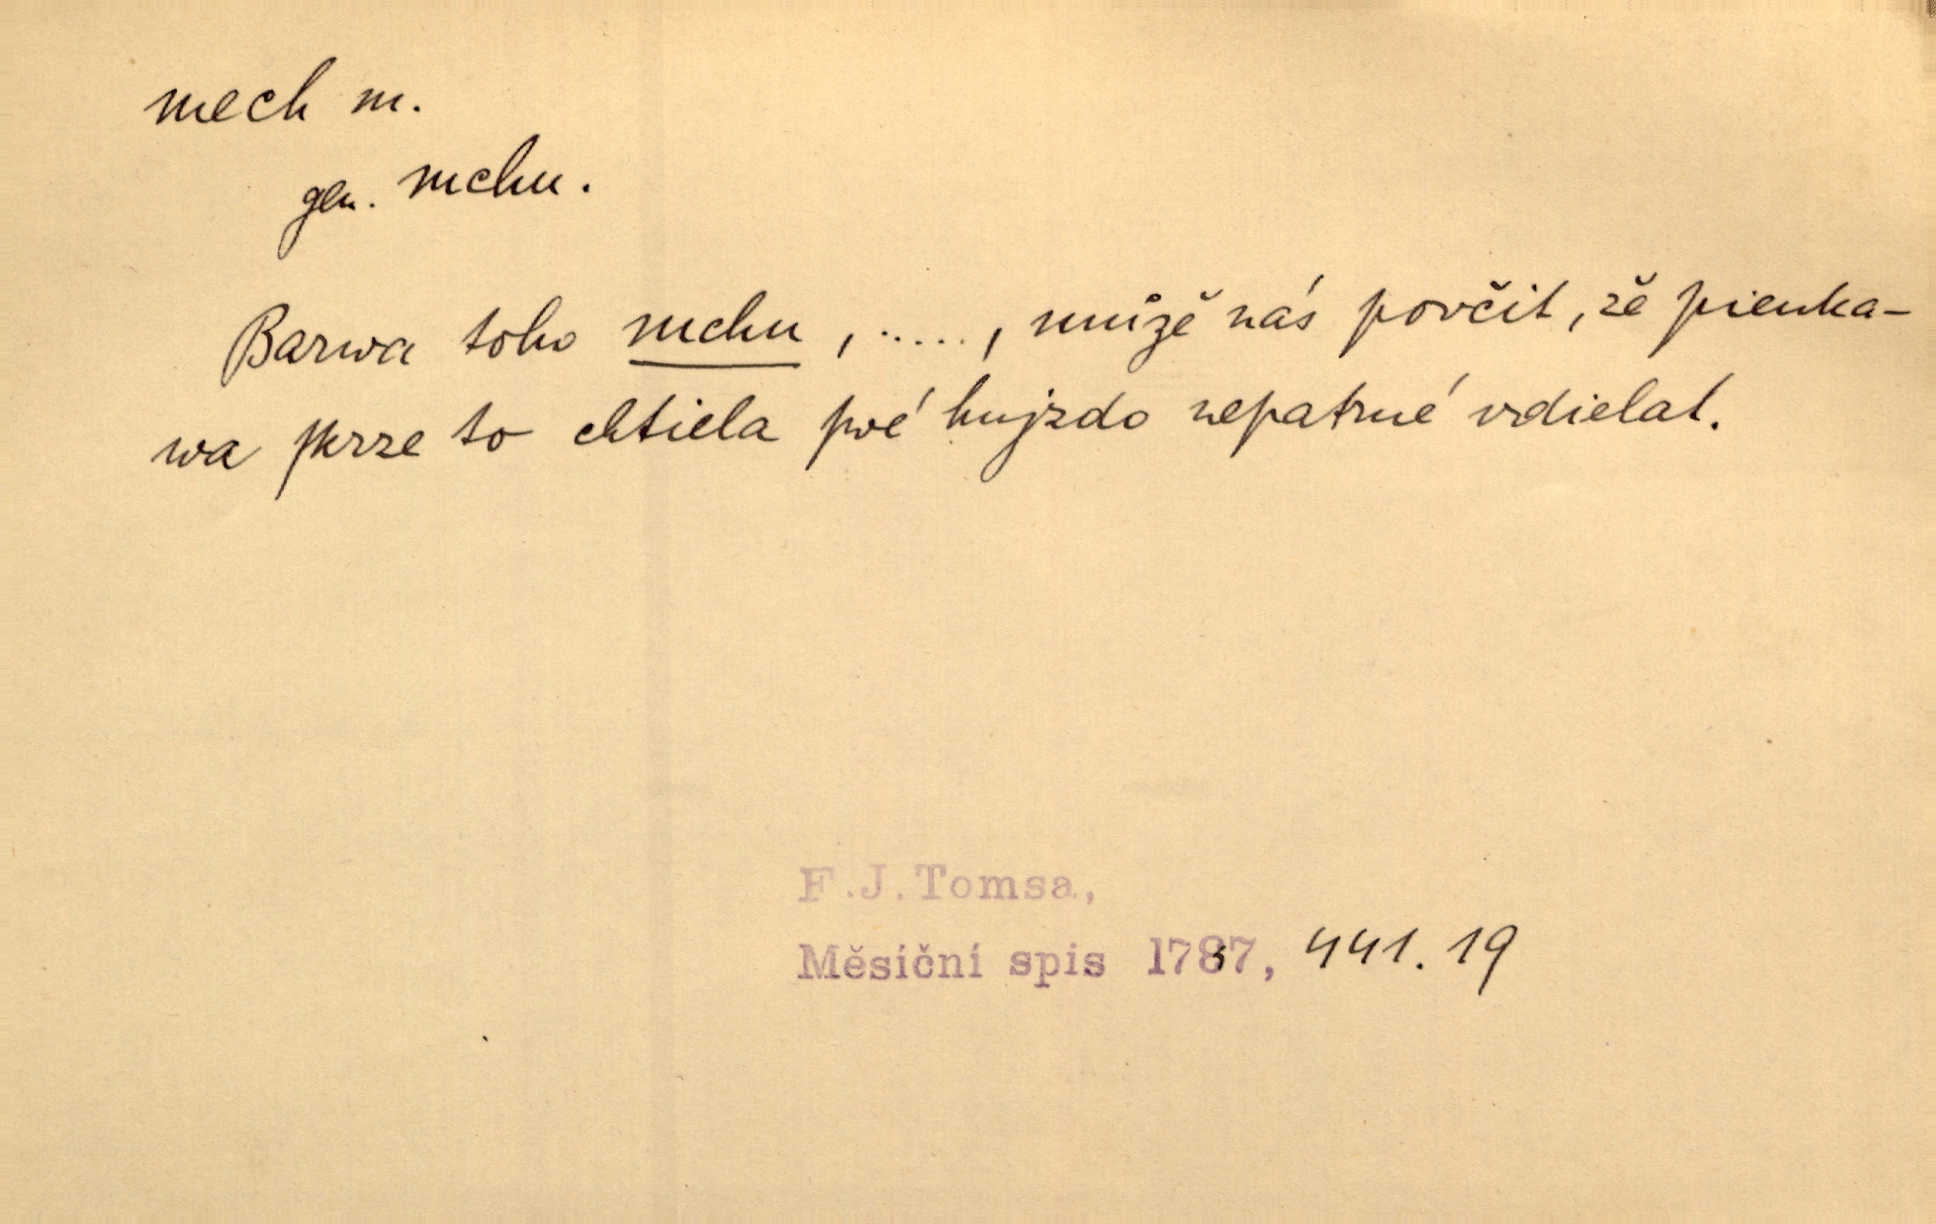 mech m.
gen. mchu.
Barwa toho mchu, ....., můžě nás povčit, zě pienka-
wa skrze to chtiela své hnjzdo nepatrné vdielat.
F.J.Tomsa,
Měsíční spis 1787, 441.19